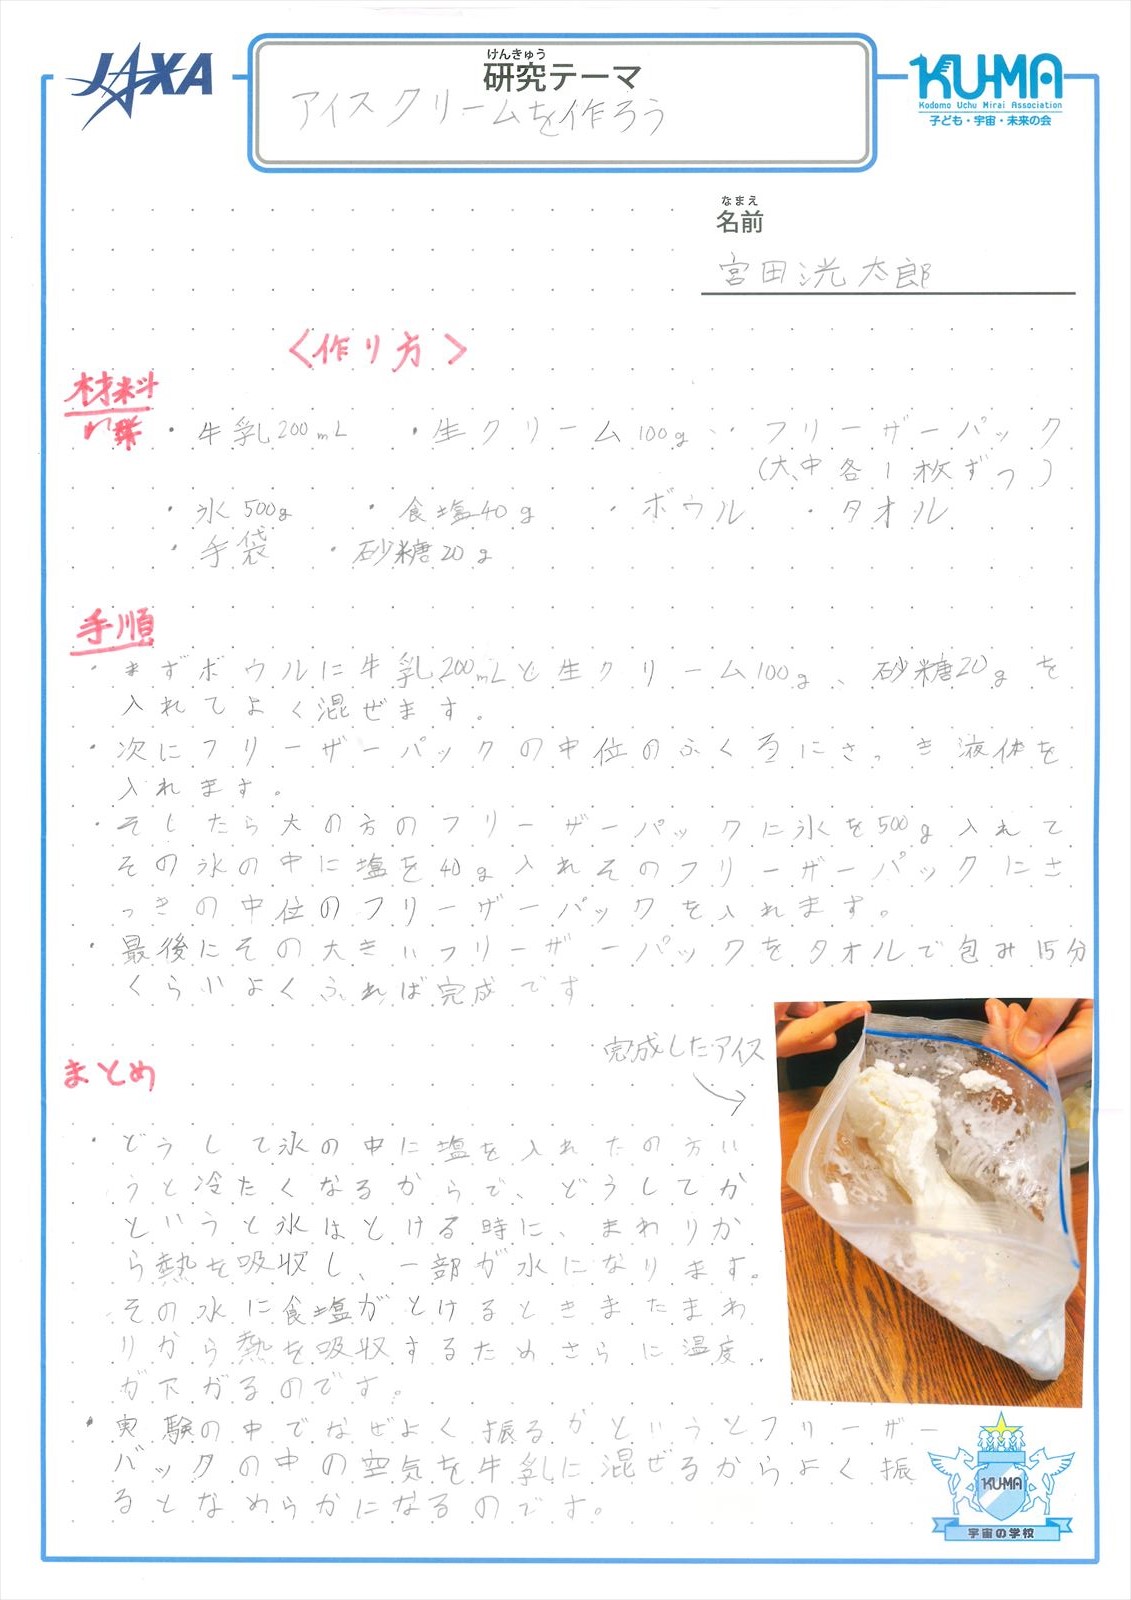 JAXA
けんきゅう
研究テーマ
アイスクリームを作ろう
KU-MA
Kodomo Uchu Mirai Association
子ども・宇宙・未来の会
なまえ
名前
宮田洸太郎
〈作り方〉
材料
・牛乳200mL ・生クリーム100g ・フリーザーパック
(大、中各1枚ずつ)
・氷500g ・食塩40g ・ボウル ・タオル
・手袋 ・砂糖20g
手順
・まずボウルに牛乳200mLと生クリーム100g、砂糖20gを
入れてよく混ぜます。
・次にフリーザーパックの中位のふくろにさっき液体を
入れます。
・そしたら大の方のフリーザーパックに氷を500g入れて
その氷の中に塩を40g入れそのフリーザーパックにさ
っきの中位のフリーザーパックを入れます。
・最後にその大きいフリーザーパックをタオルで包み15分
くらいよくふれば完成です
完成したアイス
まとめ
・どうして氷の中に塩を入れたの方い
うと冷たくなるからで、どうしてか
というと氷はとける時に、まわりか
ら熱を吸収し、一部が水になります。
その水に食塩がとけるときまたまわ
りから熱を吸収するためさらに温度
が下がるのです。
・実験の中でなぜよく振るかというとフリーザー
バックの中の空気を牛乳に混ぜるからよく振
るとなめらかになるのです。
KU-MA
宇宙の学校